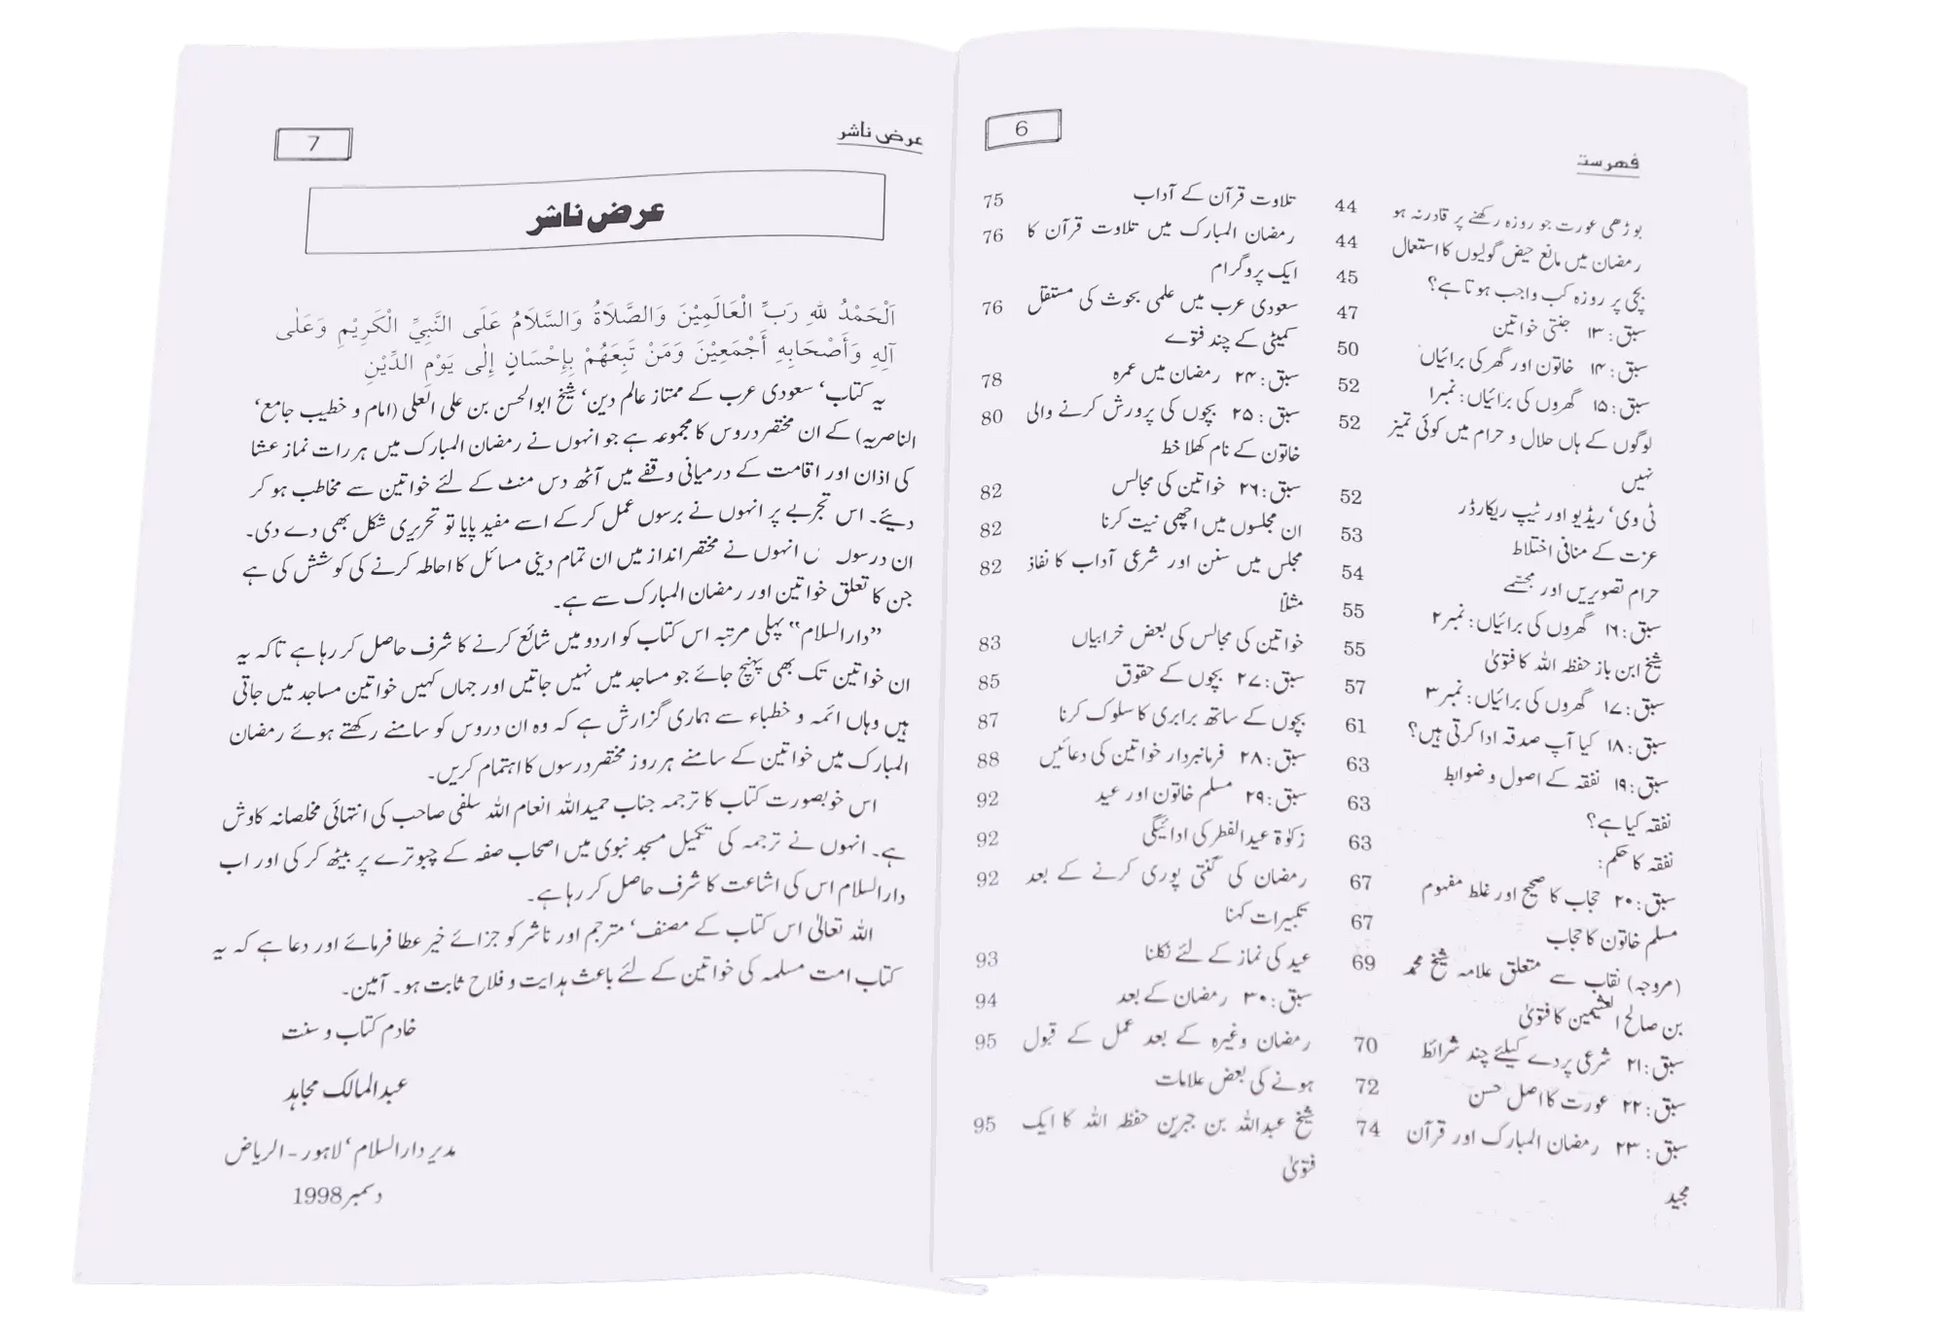 6
فهرست
بوڑھی عورت جو روزہ رکھنے پر قادر نہ ہو 44
رمضان میں مانع حیض گولیوں کا استعمال 44
بچی پر روزہ کب واجب ہوتا ہے؟ 45
سبق: ۱۳ جنتی خواتین 47
سبق: ۱۴ خاتون اور گھر کی برائیاں 50
سبق: ۱۵ گھروں کی برائیاں: نمبر۱ 52
لوگوں کے ہاں حلال و حرام میں کوئی تمیز 52
نہیں
ٹی وی‘ ریڈیو اور ٹیپ ریکارڈر 52
عزت کے منافی اختلاط 53
حرام تصویریں اور مجسّمے 54
سبق: ۱۶ گھروں کی برائیاں: نمبر۲ 55
شیخ ابن باز حفظہ اللہ کا فتویٰ 55
سبق: ۱۷ گھروں کی برائیاں: نمبر۳ 57
سبق: ۱۸ کیا آپ صدقہ ادا کرتی ہیں؟ 61
سبق: ۱۹ نفقہ کے اصول و ضوابط 63
نفقہ کیا ہے؟ 63
نفقہ کا حکم: 63
سبق: ۲۰ حجاب کا صحیح اور غلط مفہوم 67
مسلم خاتون کا حجاب 67
(مروجہ) نقاب سے متعلق علامہ شیخ محمد 69
بن صالح العثیمین کا فتویٰ
سبق: ۲۱ شرعی پردے کیلئے چند شرائط 70
سبق: ۲۲ عورت کا اصل حسن 72
سبق: ۲۳ رمضان المبارک اور قرآن 74
مجید
تلاوت قرآن کے آداب 75
رمضان المبارک میں تلاوت قرآن کا 76
ایک پروگرام
سعودی عرب میں علمی بحوث کی مستقل 76
کمیٹی کے چند فتوے
سبق: ۲۴ رمضان میں عمرہ 78
سبق: ۲۵ بچوں کی پرورش کرنے والی 80
خاتون کے نام کھلا خط
سبق: ۲۶ خواتین کی مجالس 82
ان مجلسوں میں اچھی نیت کرنا 82
مجلس میں سنن اور شرعی آداب کا نفاذ 82
مثلاً
خواتین کی مجالس کی بعض خرابیاں 83
سبق: ۲۷ بچوں کے حقوق 85
بچوں کے ساتھ برابری کا سلوک کرنا 87
سبق: ۲۸ فرمانبردار خواتین کی دعائیں 88
سبق: ۲۹ مسلم خاتون اور عید 92
زکوٰۃ عیدالفطر کی ادائیگی 92
رمضان کی گنتی پوری کرنے کے بعد 92
تکبیرات کہنا
عید کی نماز کے لئے نکلنا 93
سبق: ۳۰ رمضان کے بعد 94
رمضان وغیرہ کے بعد عمل کے قبول 95
ہونے کی بعض علامات
شیخ عبداللہ بن جبرین حفظہ اللہ کا ایک 95
فتویٰ
عرض ناشر
7
عرض ناشر
اَلْحَمْدُ للهِ رَبِّ الْعَالَمِيْنَ وَالصَّلَاةُ وَالسَّلَامُ عَلَى النَّبِيِّ الْكَرِيْمِ وَعَلٰى
آلِهِ وَأَصْحَابِهِ أَجْمَعِيْنَ وَمَنْ تَبِعَهُمْ بِإِحْسَانٍ إِلٰى يَوْمِ الدِّيْنِ
یہ کتاب‘ سعودی عرب کے ممتاز عالم دین‘ شیخ ابوالحسن بن علی العلی (امام و خطیب جامع‘
الناصریہ) کے ان مختصر دروس کا مجموعہ ہے جو انہوں نے رمضان المبارک میں ہر رات نماز عشا
کی اذان اور اقامت کے درمیانی وقفے میں آٹھ دس منٹ کے لئے خواتین سے مخاطب ہو کر
دیئے۔ اس تجربے پر انہوں نے برسوں عمل کر کے اسے مفید پایا تو تحریری شکل بھی دے دی۔
ان درسوں انہوں نے مختصر انداز میں ان تمام دینی مسائل کا احاطہ کرنے کی کوشش کی ہے
جن کا تعلق خواتین اور رمضان المبارک سے ہے۔
”دارالسلام“ پہلی مرتبہ اس کتاب کو اردو میں شائع کرنے کا شرف حاصل کر رہا ہے تاکہ یہ
ان خواتین تک بھی پہنچ جائے جو مساجد میں نہیں جاتیں اور جہاں کہیں خواتین مساجد میں جاتی
ہیں وہاں ائمہ و خطباء سے ہماری گزارش ہے کہ وہ ان دروس کو سامنے رکھتے ہوئے رمضان
المبارک میں خواتین کے سامنے ہر روز مختصر درسوں کا اہتمام کریں۔
اس خوبصورت کتاب کا ترجمہ جناب حمیداللہ انعام اللہ سلفی صاحب کی انتہائی مخلصانہ کاوش
ہے۔ انہوں نے ترجمہ کی تکمیل مسجد نبوی میں اصحاب صفہ کے چبوترے پر بیٹھ کر کی اور اب
دارالسلام اس کی اشاعت کا شرف حاصل کر رہا ہے۔
اللہ تعالیٰ اس کتاب کے مصنف‘ مترجم اور ناشر کو جزائے خیر عطا فرمائے اور دعا ہے کہ یہ
کتاب امت مسلمہ کی خواتین کے لئے باعث ہدایت و فلاح ثابت ہو۔ آمین۔
خادم کتاب و سنت
عبدالمالک مجاہد
مدیر دارالسلام‘ لاہور - الریاض
دسمبر 1998